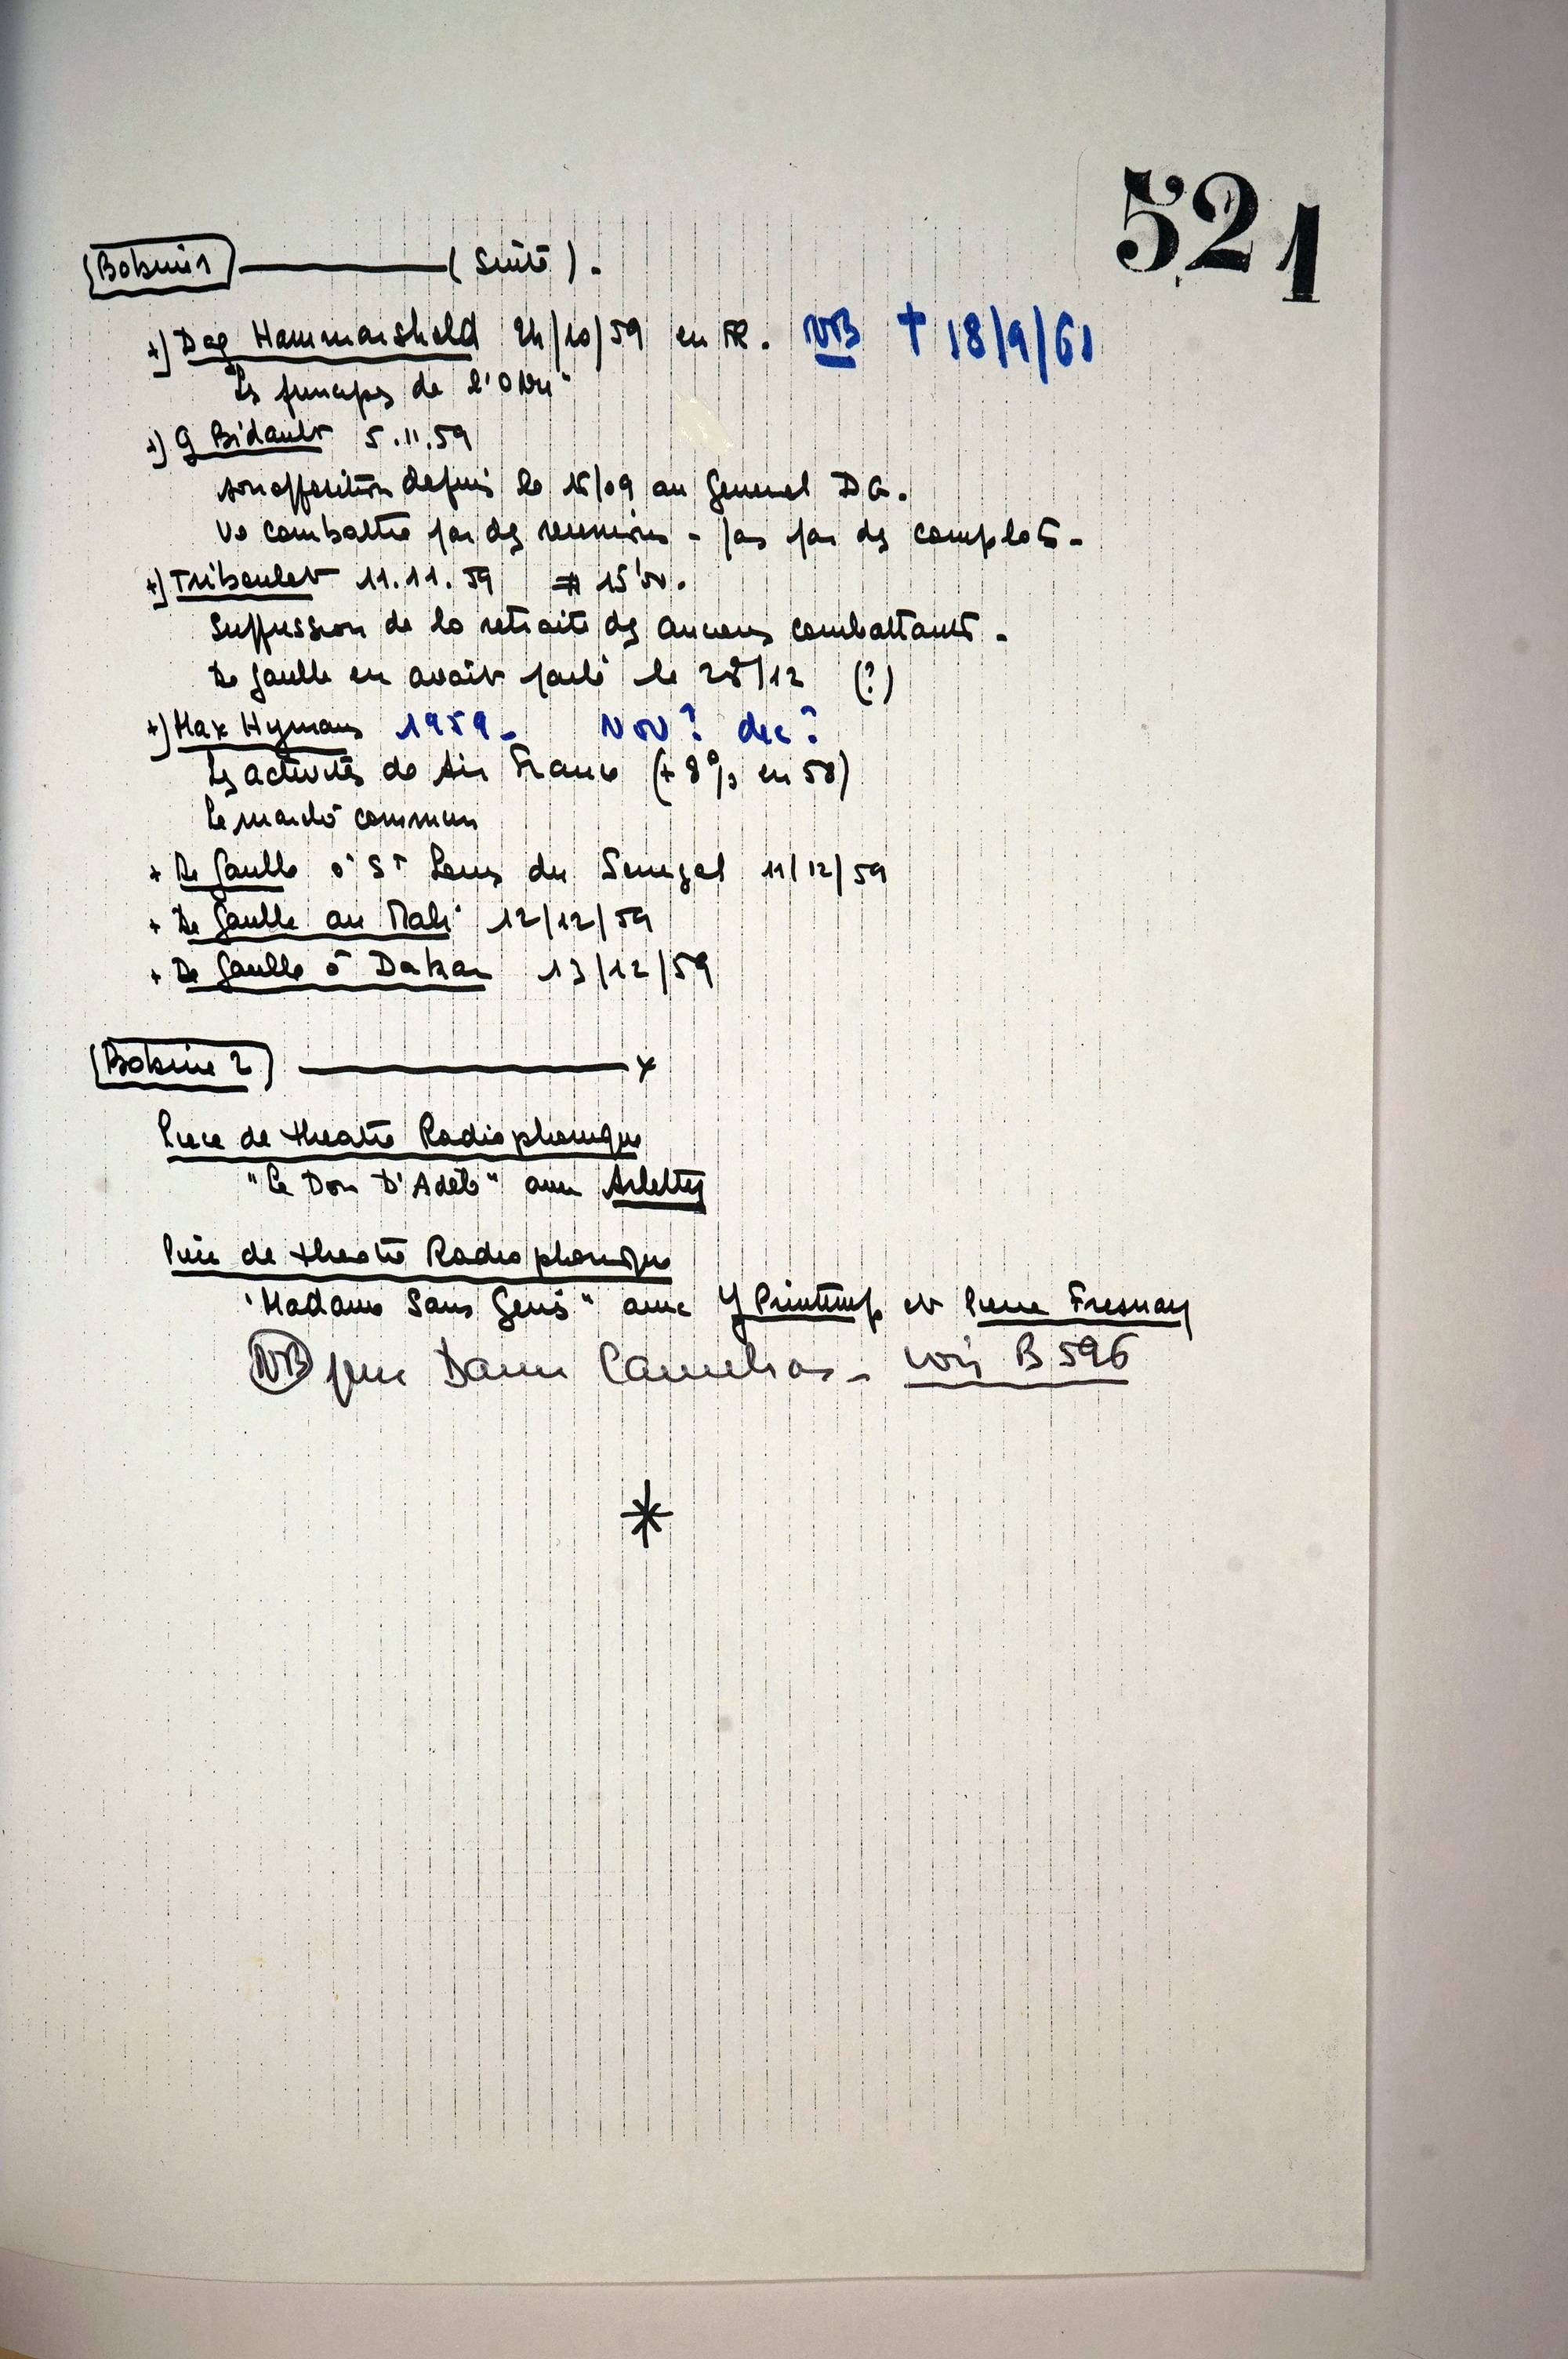 521
Bobine 1 ( Suite ).
+) Dag Hammarshold 24/10/59 en FR. NB † 18/9/61
"Les principes de l'ONU"
+) G Bidault 5.11.59
son opposition depuis le 16/09 au General DG.
Va combattre par des reunions - pas par des complots -
+) Triboulet 11.11.59 # 15'50.
Suppression de la retraite des anciens combattants -
De Gaulle en avait parlé le 28/12 (?)
+) Max Hymans 1959 - Nov ? dec ?
Les activités de Air France (+ 8% en 58)
Le marché commun
+ De Gaulle à St Louis du Senegal 11/12/59
+ De Gaulle au Mali 12/12/59
+ De Gaulle à Dakar 13/12/59
Bobine 2 x
Piece de theatre Radiophonique
"Le Don D'Adèle" avec Arletty
Piece de theatre Radiophonique
"Madame Sans Gêne" avec Y Printemps et Pierre Fresnay
NB pour Dame Camelias - voir B 596